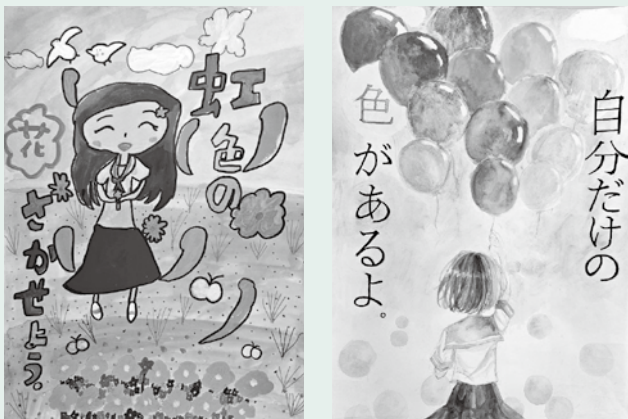 虹色の
花
さかせよう。
自分だけの
色があるよ。